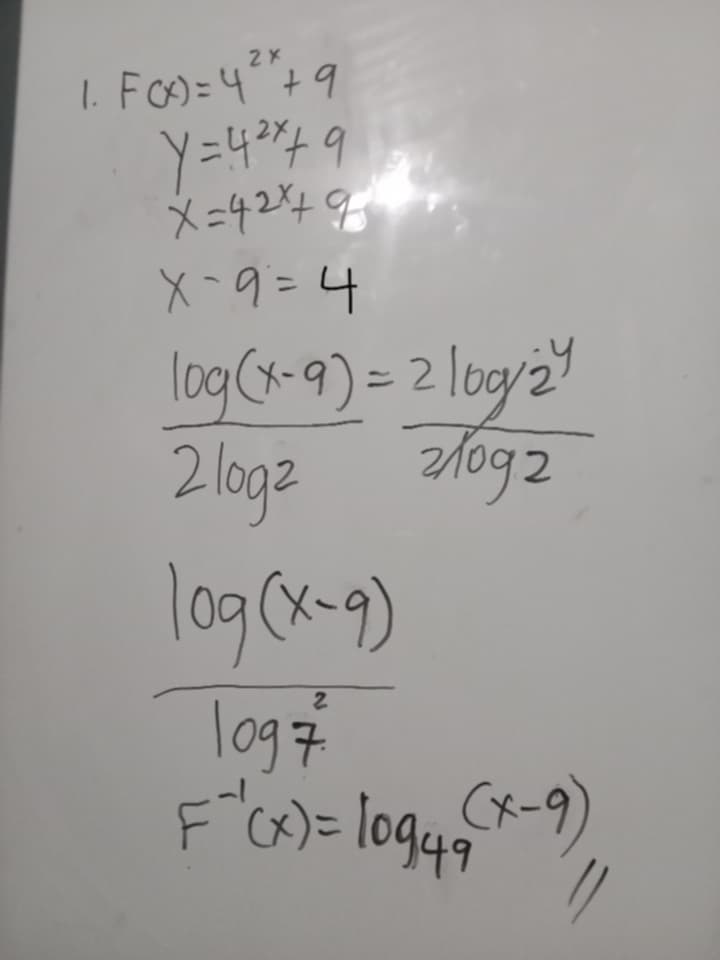 1. F(x)=4^2x+9
y=4^2x+9
x=42^x+9
x-9=4
log(x-9)=2log2^y
2log2 2log2
log(x-9)
log7^2
F^-1(x)=log_49(x-9)//